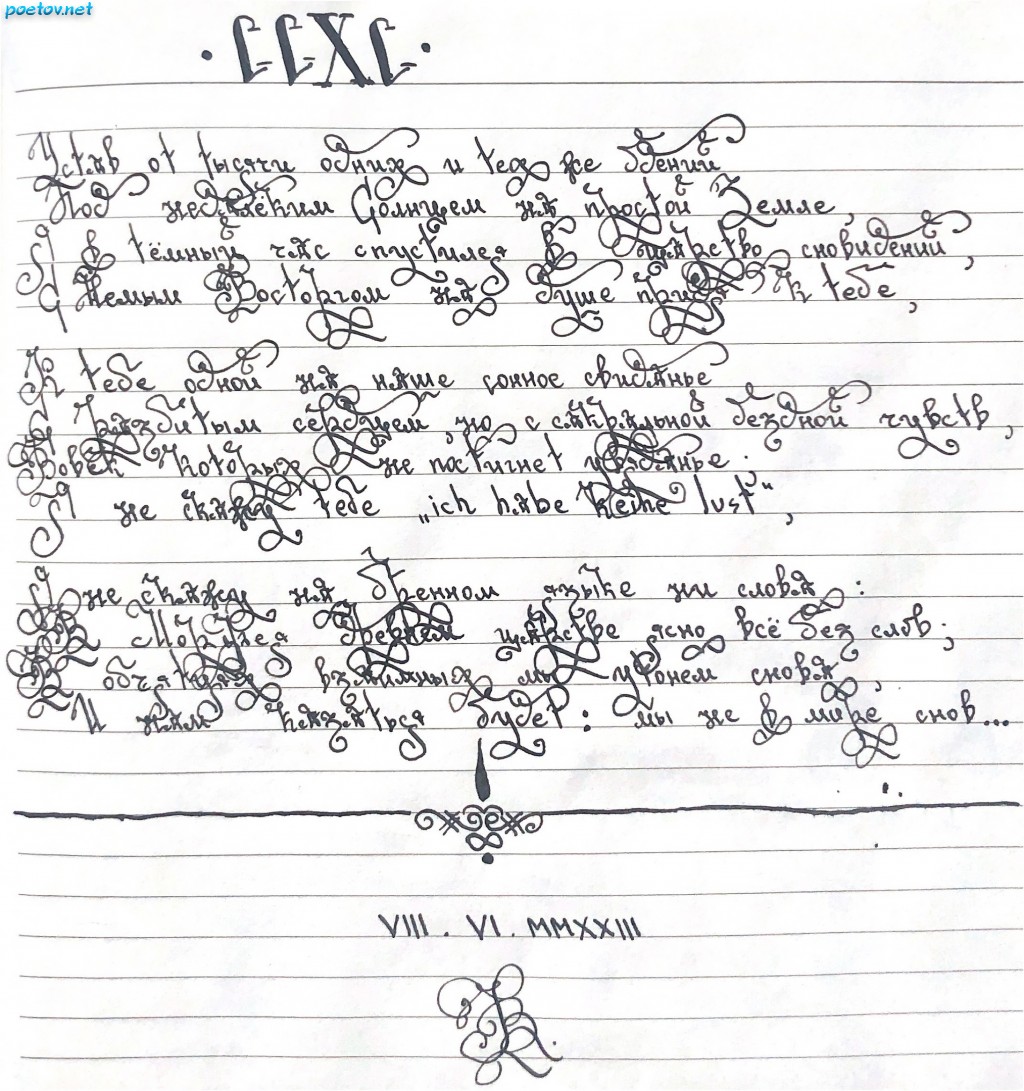 poetov.net
· CCXC ·
Устав от тысячи одних и тех же бдений
Под недалёким Солнцем на простой Земле,
Я в тёмный час спустился в царство сновидений,
С Немым Восторгом на душе придя к тебе,
К тебе одной на наше сонное свиданье
С разбитым сердцем, но с сакральной бездной чувств,
Вовек которых не постигнет увяданье:
Я не скажу тебе „ich habe keine lust“,
Я не скажу на бренном языке ни слова:
В Морфуя древнем царстве ясно всё без слов;
В объятиях взаимных мы утонем снова,
И нам казаться будет: мы не в мире снов...
VIII . VI . MMXXIII